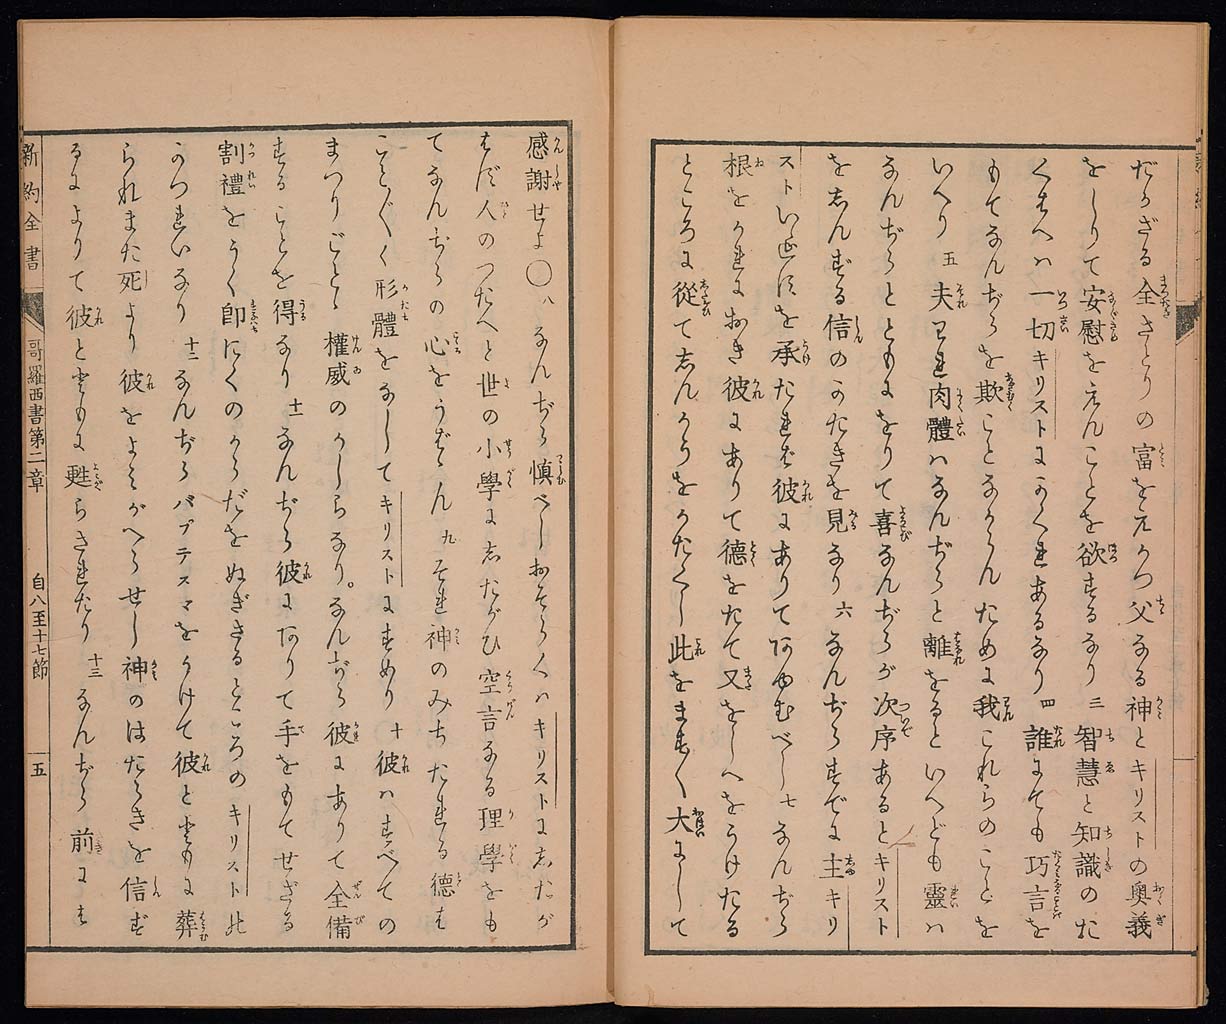 だらざる全さとりの富をえかつ父なる神とキリストの奥義
をしりて安慰をえんことを欲するなり 三 智慧と知識のた
くはへハ一切キリストにかくれあるなり 四 誰にても巧言を
もてなんぢらを欺ことなからんために我これらのことを
いへり 五 夫われ肉體ハなんぢらと離をるといへども靈ハ
なんぢらとともにをりて喜なんぢらが次序あるとキリスト
をしんずる信のかたきを見なり 六 なんぢらすでに主キリ
ストいゑすを承たれば彼にありてあゆむべし 七 なんぢら
根をかれにおき彼にありて徳をたて又をしへをうけたる
ところに從てしんかうをかたくし此をますく大にして
感謝せよ○ 八 なんぢら慎べしおそらくハキリストにしたが
はず人のつたへと世の小學にしたがひ空言なる理學をも
てなんぢらの心をうばゝん 九 それ神のみちたれる徳は
ことごとく形體をなしてキリストにすめり 十 彼ハすべての
まつりごとゝ權威のかしらなり。なんぢら彼にありて全備
することを得なり 十一 なんぢら彼にありて手をもてせざる
割禮をうく即にくのからだをぬぎさるところのキリスト此
かつれいなり 十二 なんぢらバプテスマをうけて彼と共に葬
られまた死より彼をよみがへらせし神のはたらきを信ず
るによりて彼と共に甦らされたり 十三 なんぢら前には
新約全書 哥羅西書第二章 自八至十七節 五